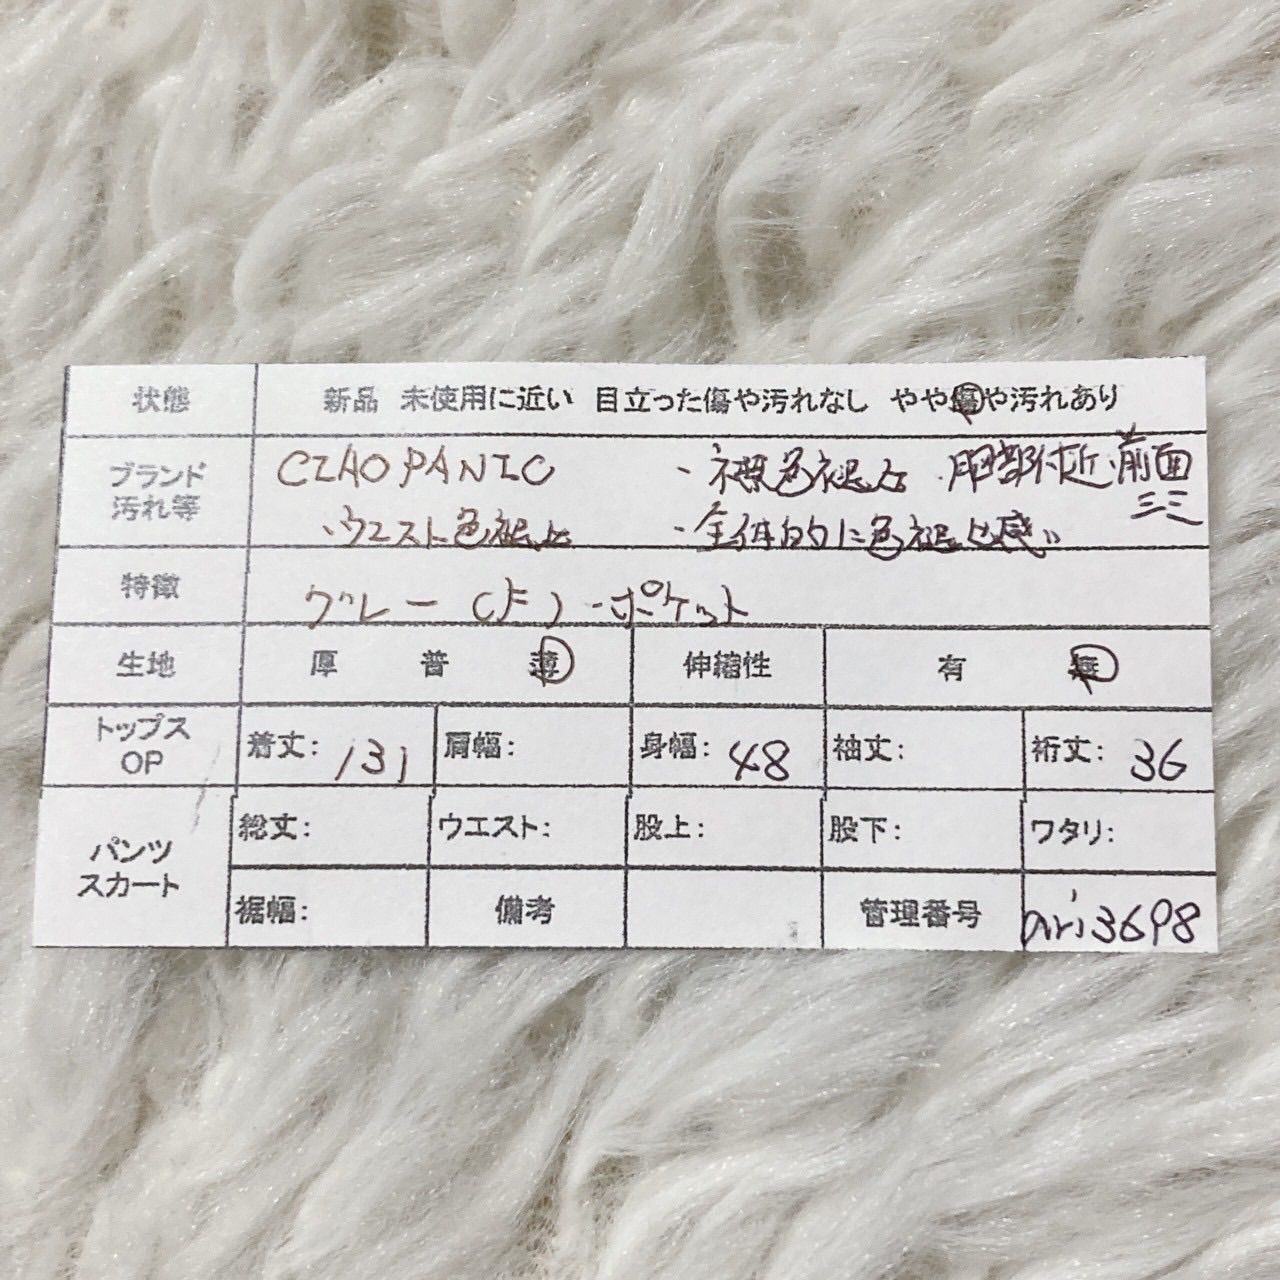 状態 新品 未使用に近い 目立った傷や汚れなし やや傷や汚れあり
ブランド 汚れ等 CIAOPANIC ・襟色褪せ ・胴部付近・前面
シミ
・ウエスト色褪せ ・全体的に色褪せ感
特徴 グレー ・ポケット
生地 厚 普 薄 伸縮性 有 無
トップス OP 着丈: 131 肩幅: 身幅: 48 袖丈: 裄丈: 36
パンツ スカート 総丈: ウエスト: 股上: 股下: ワタリ:
裾幅: 備考 管理番号 ari3698